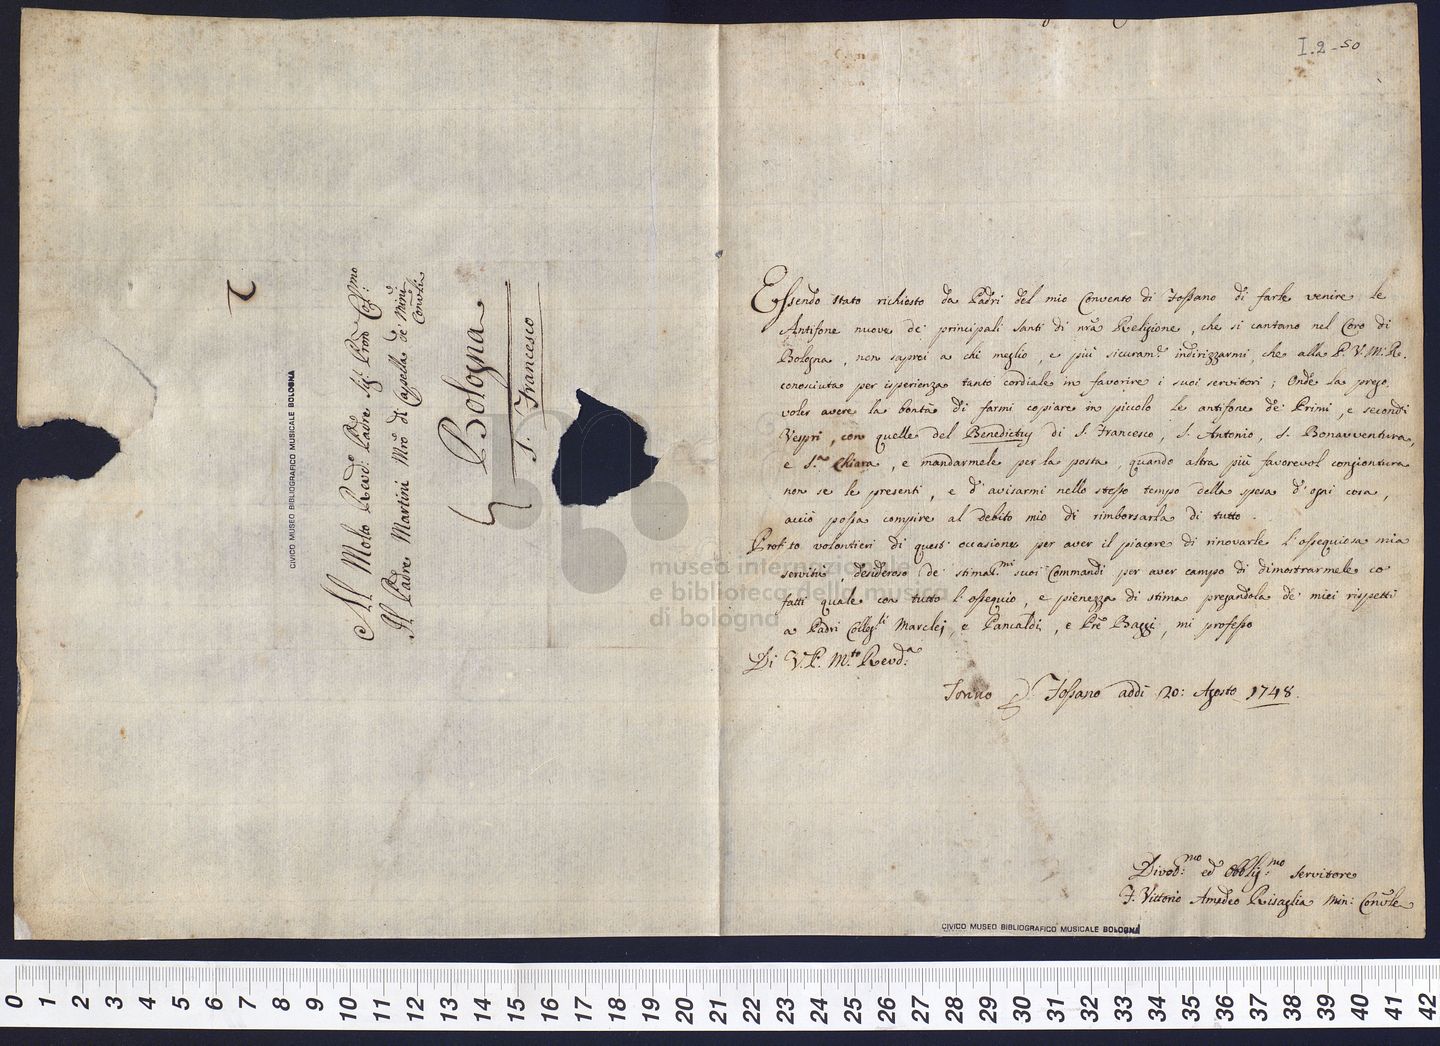 I.2-50
Essendo stato richiesto da Padri del mio Convento di Fossano di farle venire le
Antifone nuove de' principali Santi di nrã Religione, che si cantano nel Coro di
Bologna, non saprei a chi meglio, e più sicuram.e indirizzarmi, che alla P. V. M. R.
conosciuta per isperienza tanto cordiale in favorire i suoi servitori; Onde la prego
voler avere la bontà di farmi copiare in piccolo le antifone de' Primi, e secondi
Vespri, con quelle del Benedictus di S. Francesco, S. Antonio, S. Bonavventura,
e S.a Chiara, e mandarmele per la posta, quando altra più favorevol congiontura
non se le presenti, e d'avisarmi nello stesso tempo della spesa d'ogni cosa,
acciò possa compire al debito mio di rimborsarla di tutto.
Profitto volontieri di quest'occasione per aver il piacere di rinovarle l'ossequiosa mia
servitù, desideroso de' stimat.mi suoi Commandi per aver campo di dimostrarmele co
fatti quale con tutto l'ossequio, e pienezza di stima pregandola de' miei rispetti
a Padri Colleg.li e Pancaldi, e Prẽ Baggi, mi professo
Di V. P. M.to Revd.a
Fossano addi 20: Agosto 1748.
Divod.mo ed Obblig.mo servitore
F. Vittorio Amedeo Risaglia Min: Convle
Al Molto Revd.o Padre Sig.r Pron Col:mo
Il Padre Martini Mro di Capella de' Mini
Convli
Bologna
S. Francesco
CIVICO MUSEO BIBLIOGRAFICO MUSICALE BOLOGNA
CIVICO MUSEO BIBLIOGRAFICO MUSICALE BOLOGNA
museo internazionale
e biblioteca della musica
di bologna
0 1 2 3 4 5 6 7 8 9 10 11 12 13 14 15 16 17 18 19 20 21 22 23 24 25 26 27 28 29 30 31 32 33 34 35 36 37 38 39 40 41 42